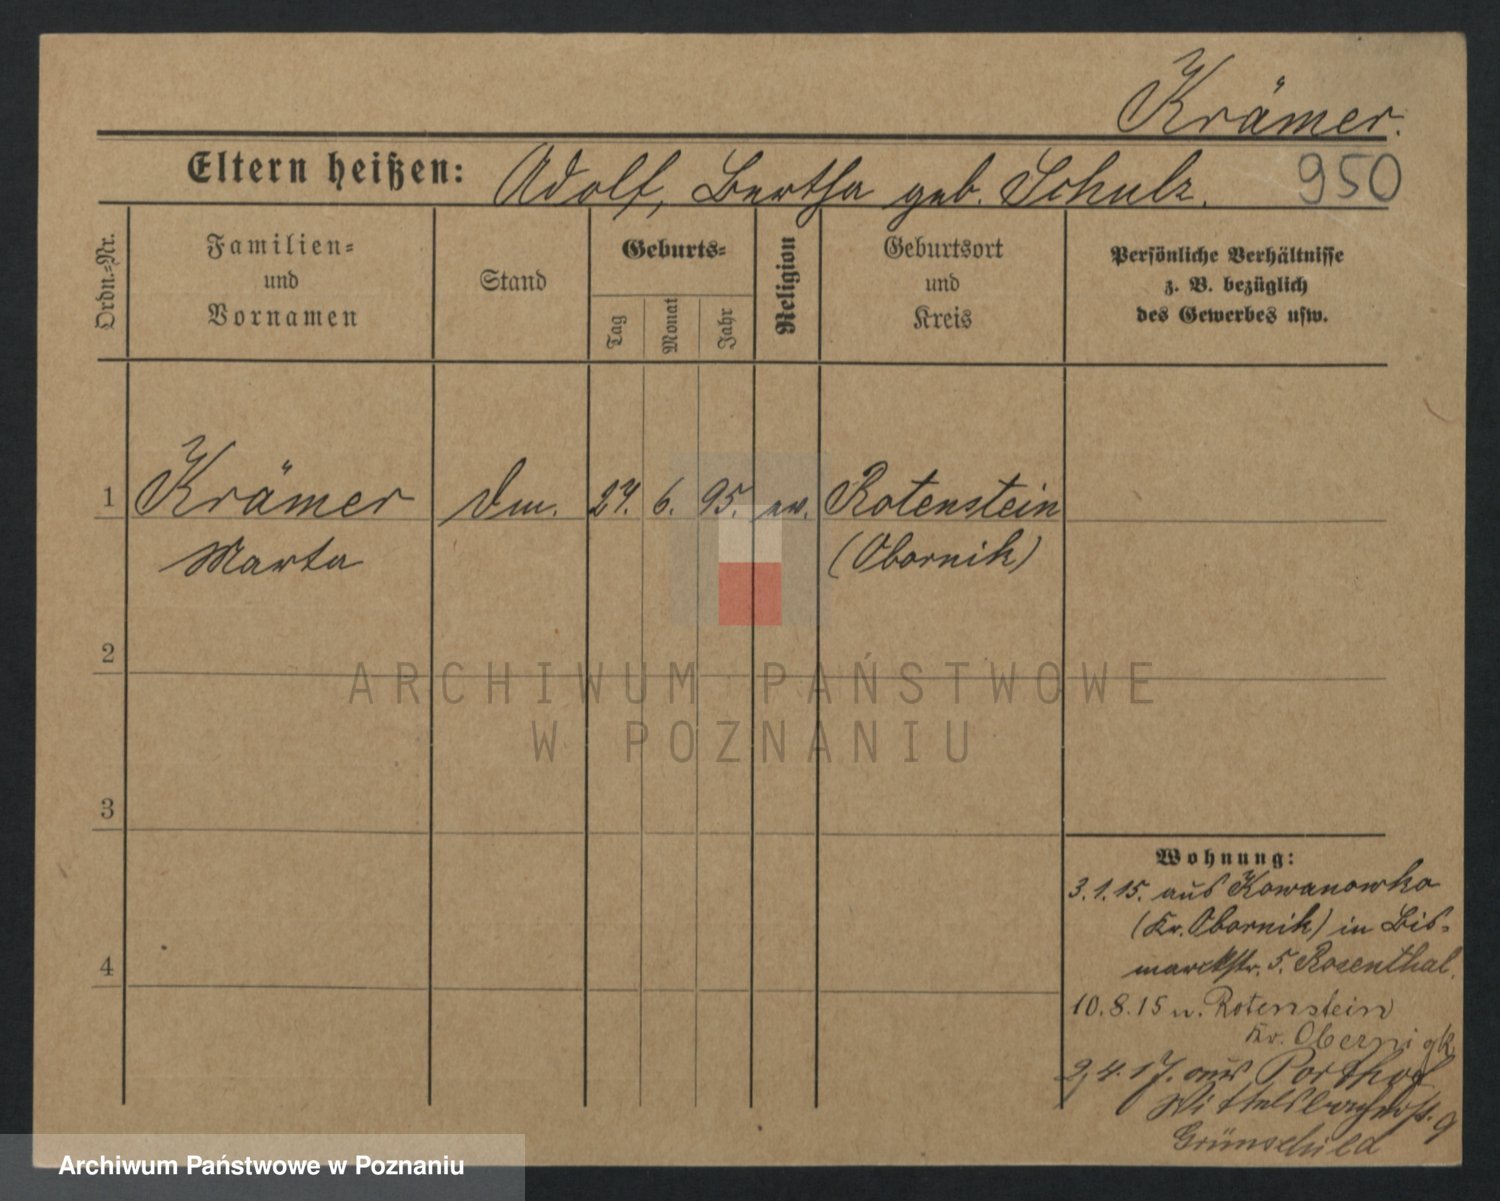 Krämer.
Eltern heißen: Adolf, Bertha geb. Schulz. 950
Ordn.-Nr.
Familien- und Vornamen
Stand
Geburts-
Tag
Monat
Jahr
Religion
Geburtsort und Kreis
Persönliche Verhältnisse
z. B. bezüglich
des Gewerbes usw.
1 Krämer Dm. 24. 6. 95. ev. Rotenstein
Marta (Obornik)
2
3
4
Wohnung:
3.1.15. aus Kowanowko
(Kr. Obornik) in Bis-
marckstr. 5. Rosenthal.
10.8.15 n. Rotenstein
Kr. Obernigk
2.4.17. aus
Wittelsbacherstr. 9
Grünschild
ARCHIWUM PAŃSTWOWE
W POZNANIU
Archiwum Państwowe w Poznaniu